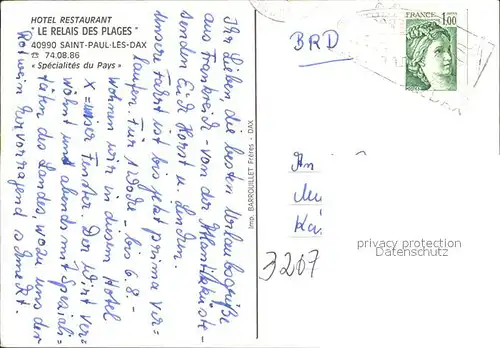 HOTEL RESTAURANT
"LE RELAIS DES PLAGES"
40990 SAINT-PAUL-LÈS-DAX
☎ 74.08.86
« Spécialités du Pays »
Ihr Lieben, die besten Urlaubsgrüße
aus Frankreich - von der Atlantikküste -
senden Euch Horst u.
Unsere Fahrt ist bis jetzt prima ver-
laufen. Für 1 Woche - bis 6.8. -
wohnen wir in diesem Hotel
X = unser Fenster Der Wirt ver-
wöhnt uns abends mit Speziali-
täten des Landes, wozu uns der
Rotwein hervorragend schmeckt.
Imp. BARROUILLET Frères - DAX
FRANCE
1,00
BRD
An
3207
privacy protection
Datenschutz